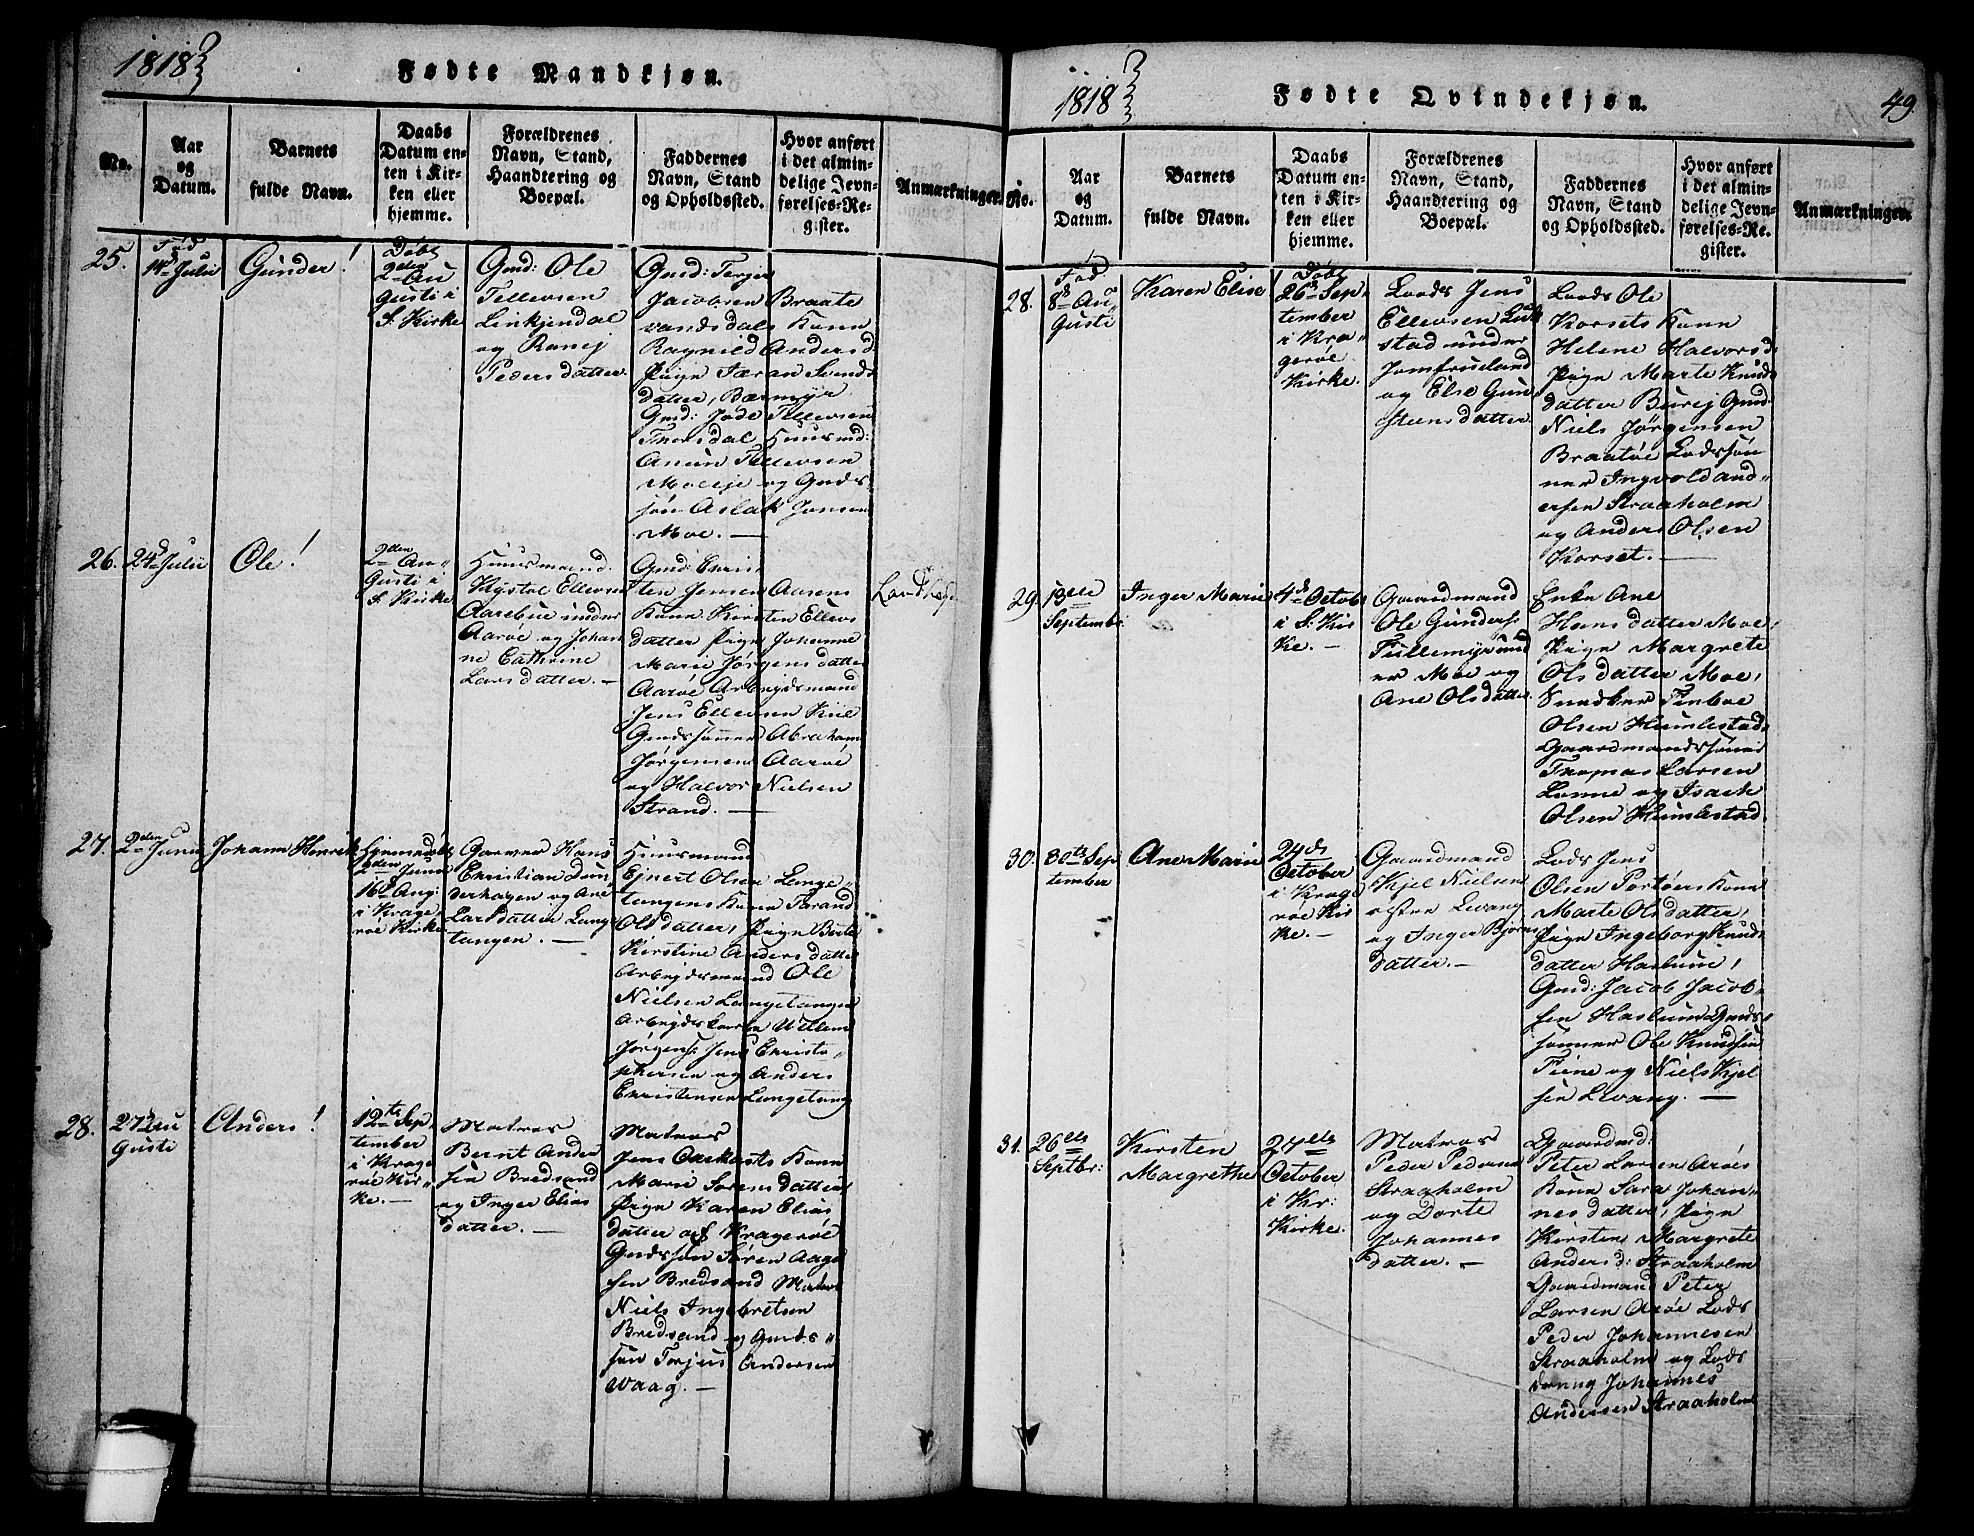 1818
Fødte Mandkjøn.
No.
Aar
og
Datum.
Barnets
fulde Navn.
Daabs
Datum en-
ten i Kir-
ken eller
hjemme.
Forældrenes
Navn, Stand,
Haandtering og
Boepæl.
Faddernes
Navn, Stand
og Opholdssted.
Hvor anført
i det almin-
delige Jevn-
førelses-Re-
gister.
Anmærkninger.
25.
Fød
14d Julii
Gunder!
Døbt
2den Au
gusti i
S: Kirke
Gmd: Ole
Tellevsen
Linkjendal
og Ranej
Pedersdatter.
Gmd: Terger
Jacobsen Braate
vandsdals Kone
Ragnild Andersd:
Pige Taran Svends
datter, Barmyr
Gmd: Jode Tellevsen
Thorsdal, Huusmd:
Anun Tellevsen
Moeeje og Gmds
søn Aslak Jonsen
Moe. —
26.
24d Julii
Ole!
2den Au=
Gusti i
S. Kirke
Huusmand
Kystol Ellevsen
Aarebue under
Aarøe og Johan
ne Cathrine
Larsdatter. —
Gmd: Chris
ten Jensen Aasens
Kone Kirsten Ellevs
datter Pige Johanne
Marie Jørgensdatter
Aarøe Arbejdsmand
Jens Ellevsen Kiil
Gmdssønner Abraham
Jørgensen Aarøe
og Halvor Nielsen
Strand. —
27.
2den Junii
Johann Henrik
Hjemedøbt
2den Junii
16d Aug:
i Krage,
røe Kirke
Garver Hans
Christian Lun
derhagen og Ane
Larsdatter Lange
tangen. —
Huusmand
Ejnert Olsen Lange
tangens Kone Tarand
Olsdatter, Pige Birte
Kirstine Andersdatter
Arbejdsmand Ole
Nielsen Langetangen
Arbejdskarle Willem
Jørgens: Jens Christo=
phersen og Anders
Christensen Langetang
28.
27d Au
Gusti
Anders!
12te Sep,
tember
i Krage
røe Kir=
ke. —
Matros
Bernt Ander
sen Bredsand
og Inger Elias
datter. —
Matros
Jens Kone
Marie Sørensdatter
Pige Karen Elias
datter af Kragerøe
Gmdssøn Søren Aage
sen Bredsand Matros
Niels Ingebretsen
Bredsand og Gmds=
søn Torjus Andersen
Waag. —
1818
Fødte Qvindekjøn.
49.
No.
Aar
og
Datum.
Barnets
fulde Navn.
Daabs
Datum en-
ten i Kir-
ken eller
hjemme.
Forældrenes
Navn, Stand,
Haandtering og
Boepæl.
Faddernes
Navn, Stand
og Opholdssted.
Hvor anført
i det almin-
delige Jevn-
førelses-Re-
gister.
Anmærkninger.
28.
Fød
8d Au
Gusti
Karen Elise
Døbt
26d Sep,
tember
i Kra=
gerøe
Kirke.
Lods Jens
Ellevsen
stad under
Jomfrueland
og Else Gun
steensdatter
Lods Ole
Korsets Kone
Helene Halvorsd:
Pige Marte Knuds
datter Burej Gmd
Niels Jørgensen
Braatøe Lodssøn
ner Ingvold And=
ersen Straaholm
og Anders Olsen
Korset. —
29.
13de
Septembr
Inger Marie
4d Octobr
i S: Kir
ke. —
Gaardmand
Ole Gunders:
Tullemyr und
er Moe og
Ane Olsdatter
Enke Ane
Hansdatter Moe,
Pige Margrete
Olsdatter Moe,
Snedker Finboe
Olsen Humlestad
Gaardmandssønner
Thomas Larsen
Lønne og Isach
Olsen Humlestad
30.
30te Sep
tember
Ane Marie
24de
October
i Krage
røe Kir
ke. —
Gaardmand
Kjel Nielsen
østre Levang
og Inger Bjørns
datter. —
Lods Jens
Olsen Portøers Kone
Marte Olsdatter,
Pige Ingeborg Knuds
datter Haslum,
Gmd: Jacob Jacob=
sen Haslum Gmds
sønner Ole Knudsen
Fiene og Niels Kjel
sen Levang. —
31.
26de
Septbr:
Kirsten
Margrethe
27de
October
i Kr:
Kirke.
Matros
Peder Pedersen
Straaholm
og Dorte
Johannes
datter. —
Gaardmd:
Peter Larsen Arøes
Kone Sara Johan=
nesdatter, Pige
Kirsten Margrete
Andersd: Straaholm
Gaardmand Peter
Larsen Arøe Lods
Peder Johannesen
Straaholm og Lods
dreng Johannes
Andersen Straaholm